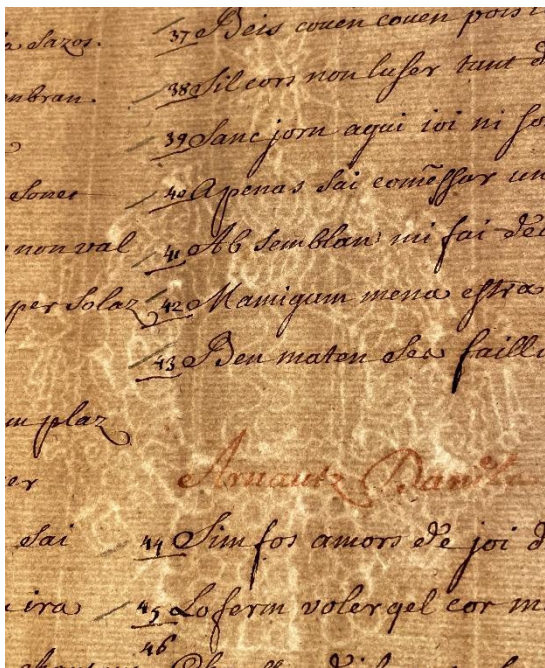 sazos.
nbran.
sonet
non val
per solaz
plaz
er
sai
ira
37 Beis couen couen pois
38 Sil cors non luser tant d
39 Sanc jorn aqui ioi ni so
40 Apenas sai comēssar un
41 Ab semblan mi fai dec
42 Mamigam mena estra
43 Ben maten ses failli
Arnautz
44 Sim fos amors de joi d
45 Lo ferm voler qel cor m
46